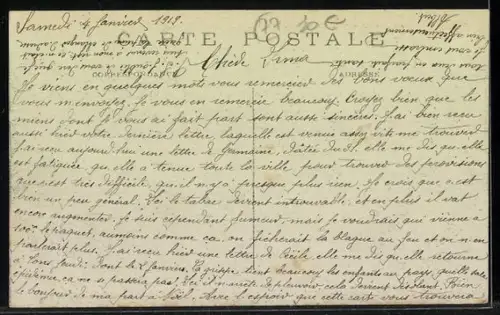 Samedi 4 Janvier 1919.
CARTE POSTALE
CORRESPONDANCE
ADRESSE
Chère Irma
Je viens en quelques mots vous remercier des bons vœux que
vous m'envoyez. Je vous en remercie beaucoup. Croyez bien que les
miens dont je vous ai fait part sont aussi sincères. J'ai bien reçu
aussi hier votre dernière lettre laquelle est venue assez vite me trouver
J'ai reçu aujourd'hui une lettre de Germaine, datée du 31. elle me dis qu'elle
est fatiguée qu'elle à tenue toute la ville pour trouver des provisions
que c'est très difficile, qu'il n'y a presque plus rien. Je crois que c'est
bien un peu général. Ici le tabac devient introuvable et en plus il vat
encore augmenter, je suis cependant fumeur, mais je voudrais que vienne a
le paquet, aumoins comme ça, on ficherait la blague au feu et on n'en
parlerait plus. J'ai reçu hier une lettre de Cécile elle me dis qu'elle retourne
à Lons Jeudi dont le 9 Janvier. La grippe tient beaucoup les enfants au pays, quelle
épidémie ça ne se passera pas! Ici il n'arrête de pleuvoir, cela devient désolant. Bien
le bonjour de ma part à Avec l'espoir que cette carte vous trouvera